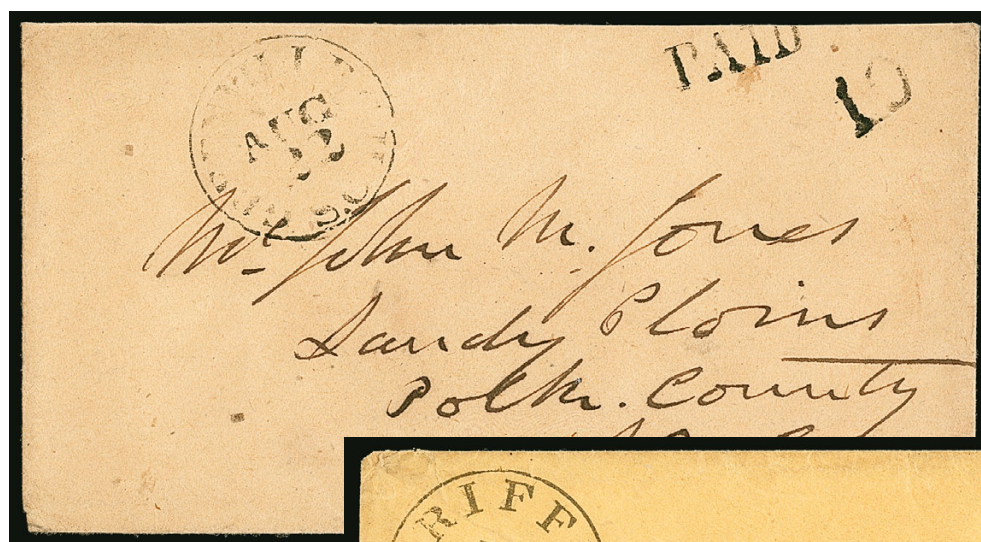 AUG
22
PAID
10
Mr. John M. Jones
Sandy Plains
Polk. County
RIFF